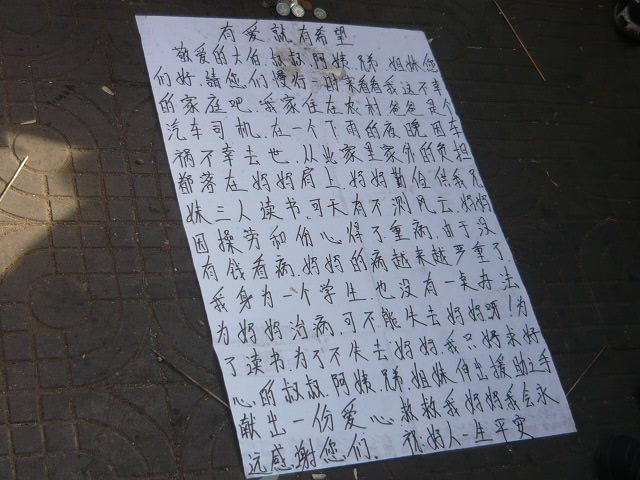 有爱就有希望
敬爱的大伯.叔叔.阿姨.兄.姐妹您
们好.请您们慢行一时来看看我这不幸
的家庭吧.我家住在农村.爸爸是个
汽车司机.在一个下雨的夜晚.因车
祸不幸去世.从此家里家外的负担
都落在妈妈肩上.妈妈勤俭供我兄
妹三人读书.可天有不测风云.妈妈
因操劳和伤心得了重病.由于没
有钱看病.妈妈的病越来越严重了.
我身为一个学生.也没有一点办法
为妈妈治病.可不能失去妈妈呀!为
了读书.为了不失去妈妈.我只好求好
心的叔叔.阿姨.兄.姐妹伸出援助之手
献出一份爱心.救救我妈妈我会永
远感谢您们. 祝:好人一生平安